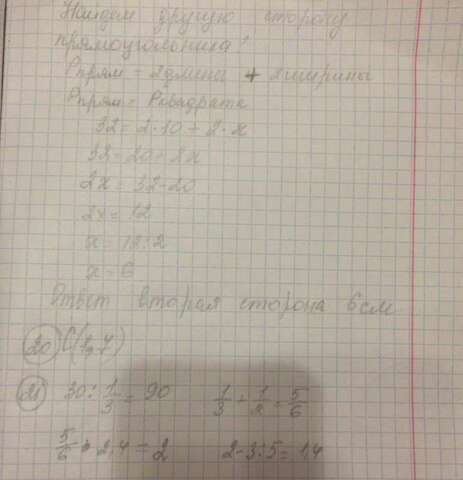 Найдем другую сторону
прямоугольника:
Pпрям = 2длины + 2ширины
Pпрям = Pквадрата
32 = 2·10 + 2·x
32 = 20 + 2x
2x = 32-20
2x = 12
x = 12:2
x = 6
Ответ вторая сторона 6 см
20) C(1;7)
21) 30 : 1/3 = 90 1/3 + 1/2 = 5/6
5/6 · 2,4 = 2 2-3:5 = 1,4